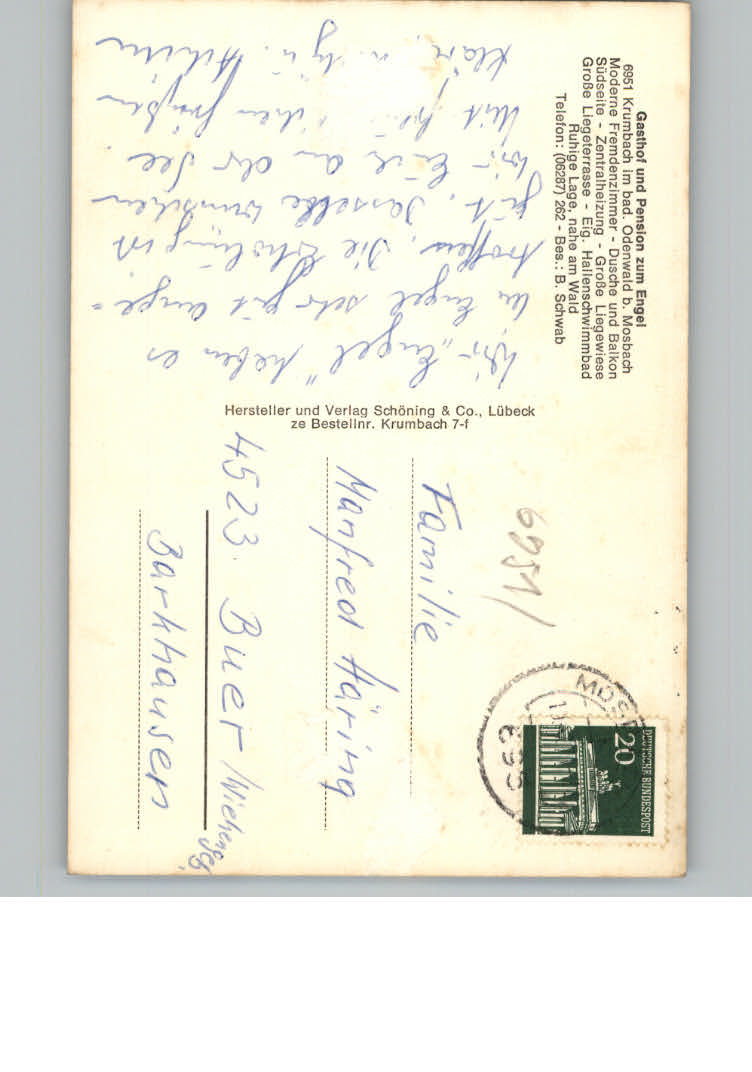 Gasthof und Pension zum Engel
6951 Krumbach im bad. Odenwald b. Mosbach
Moderne Fremdenzimmer - Dusche und Balkon
Südseite - Zentralheizung - Große Liegewiese
Große Liegeterrasse - Eig. Hallenschwimmbad
Ruhige Lage, nahe am Wald
Telefon: (06287) 262 - Bes.: B. Schwab
Wir "Engel" haben es
im Engel sehr gut ange=
troffen. Die Erholung ist
gut. Dasselbe wünschen
wir Euch an der See.
Mit Grüßen
Hersteller und Verlag Schöning & Co., Lübeck
ze Bestellnr. Krumbach 7-f
6951
MOSB
695
DEUTSCHE BUNDESPOST
20
Familie
Manfred Häring
4523 Buer/Wiehengeb.
Barkhausen